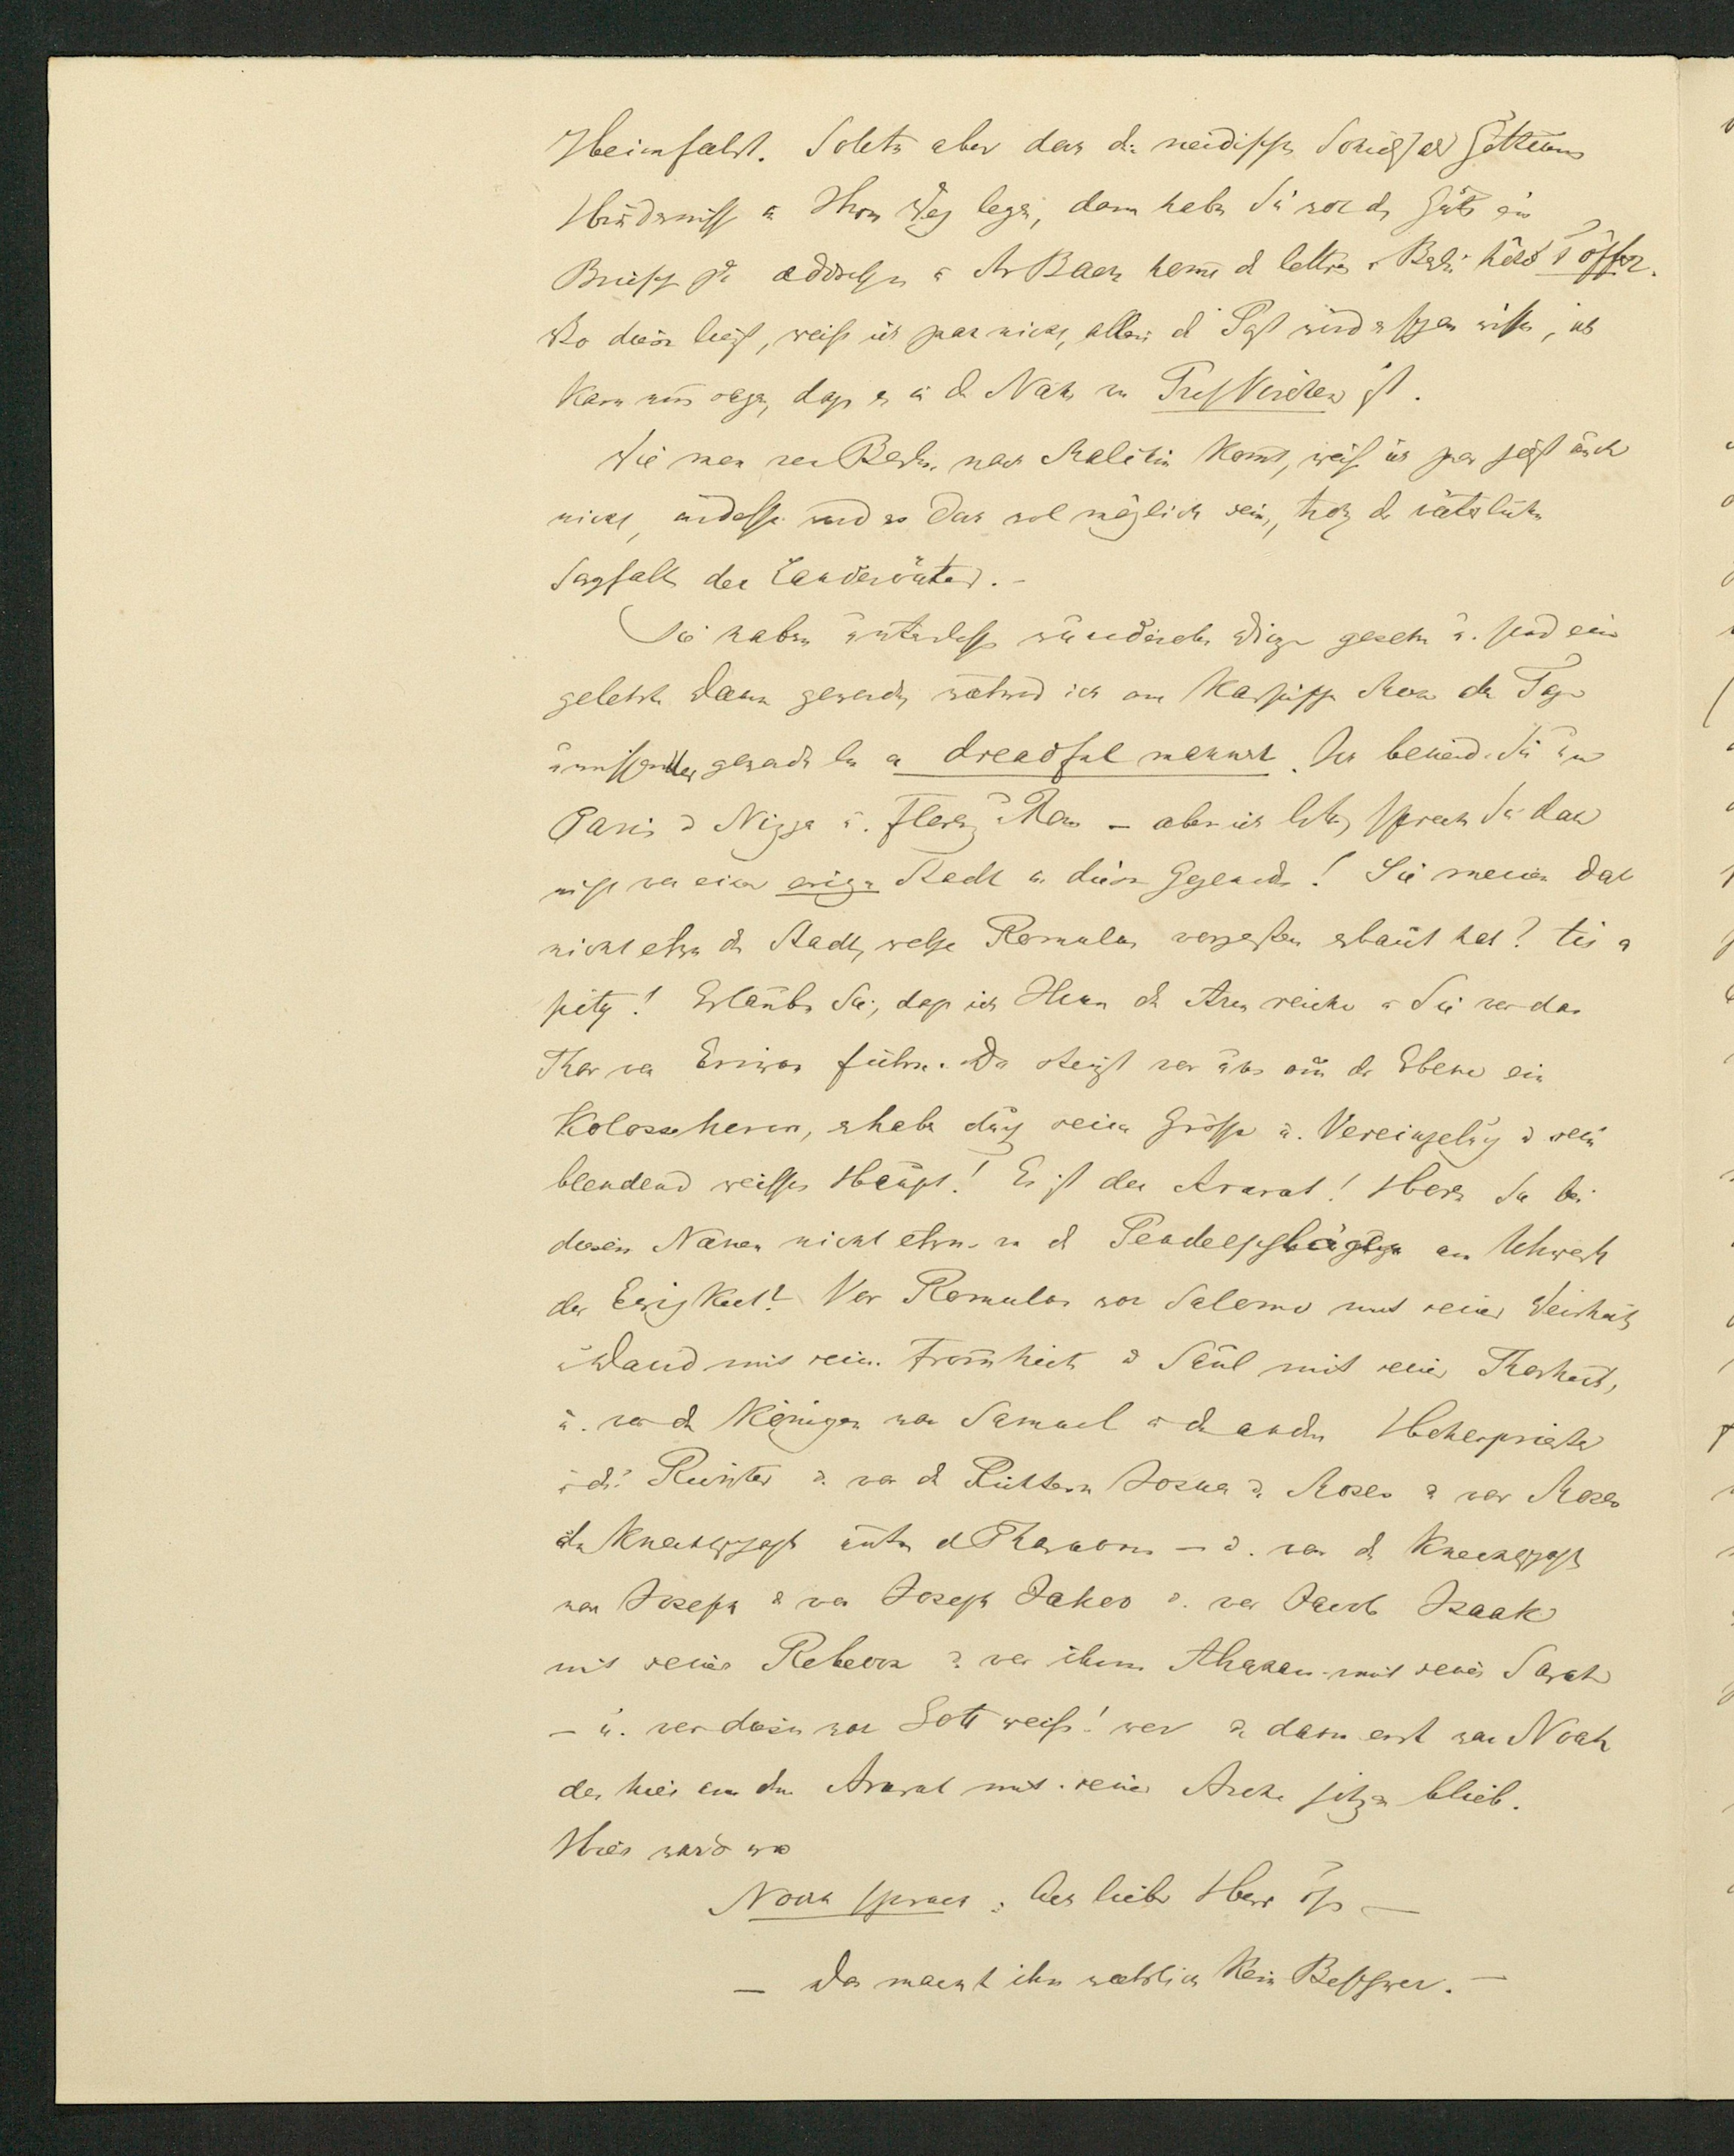 Heimfahrt. Sollte aber das die neidische Schicksal Göttinnen
Hindernisse in Ihren Weg legen, dann haben Sie wol die Güte ein
Briefch zu addressen a Mr Baer homme de lettres Berlin hôtel Töpfer.
Wo dieser liegt, weiss ich zwar nicht, allein d Post wird es schon wissen, ich
kann nur sagen, dass er in der Nähe von
Wie man von Berlin nach kommt, weiss ich zwar jetzt auch
nicht, indessen wird es doch wol möglich sein, trotz der väterlichen
Sorgfalt der Landesväter. –
Sie haben unterdess wunderbare Dinge gesehn u. sind ein
gelehrte Dame geworden, während ich am Kaspischen Meer alle Tage
unwissender geworden bin a dreadful manner. Ich beneide Sie um
Paris u Nizza u. Florenz u Rom – aber ich bitte, sprechen Sie doch
nicht von einer ewigen Stadt in diesen Gegenden! Sie meinen doch
nicht etwa die Stadt, welche Romulus vorgestern erbaut hat? tis a
pity! Erlauben Sie, dass ich Ihnen den Arm reiche u Sie vor das
Thor von Eriwan führe. Da steigt vor uns aus der Ebene ein
Koloss hervor, erhaben durch seine Grösse u. Vereinzelung u sein
blendend weisses Haupt! Es ist der Ararat! Hören Sie bei
diesem Namen nicht etwas von d Pendelschlägen am Uhrwerk
der Ewigkeit? Vor Romulus war Salomo mit seiner Weisheit
u David mit sein. Frommheit u Saul mit seiner Thorheit,
u. vor den Königen war Samuel u die andern Hohenpriester
u die Richter u. vor d Richtern Josua u. Moses u vor Moses
die Knechtschaft unter d Pharaonen – u. vor d Knechtschaft
war Joseph u vor Joseph Jakob u. vor Jacob Isaak
mit seiner Rebecca u. vor ihnen Abraham mit seiner Sarah
– u. vor diesen war Gott weiss! wer u dann erst war Noah
der hier an dem Ararat mit seiner Arche sitzen blieb.
Hier ward wo
Noah sprach: Ach lieber Herr –
– Das macht ihm wahrlich kein Beschwer. –